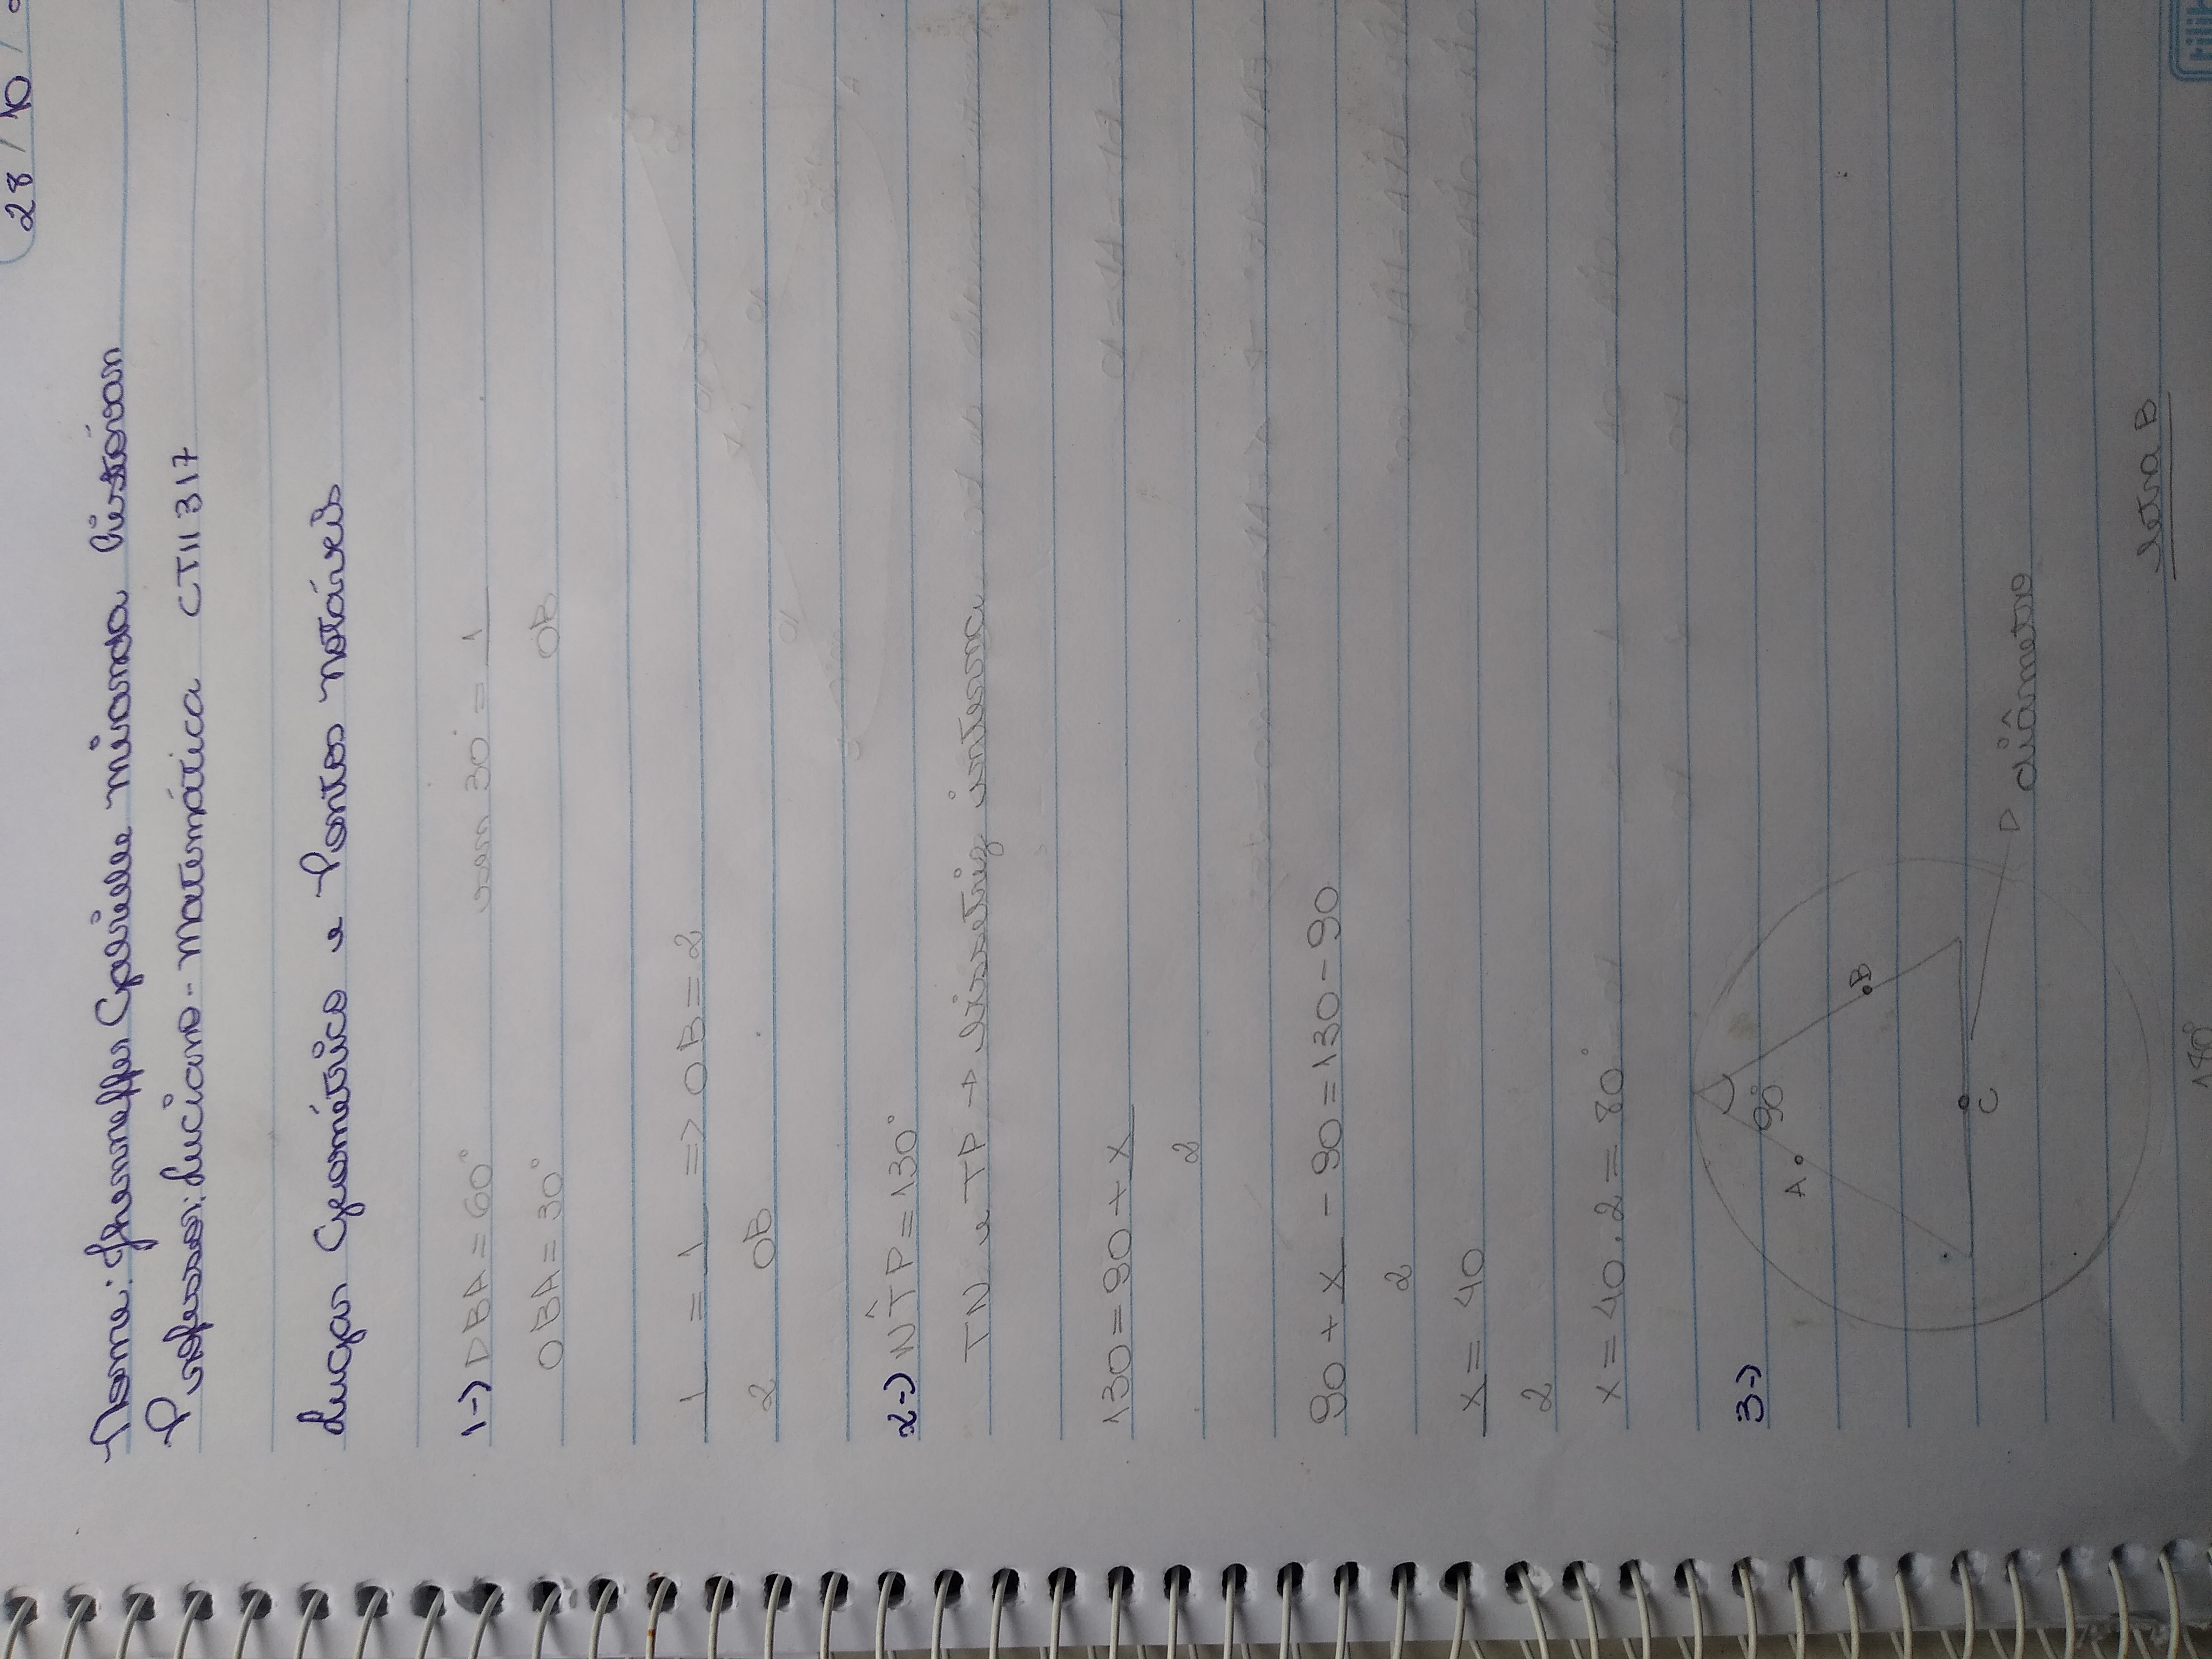 28/10/
Nome: Jhenneffer Gabrielle Miranda Cristóvan
Professor: Luciano - Matemática CTII 317
Lugar Geométrico e Pontos Notáveis
1-) DBA = 60° sen 30° = 1
OBA = 30° OB
1 = 1 => OB = 2
2 OB
2-) NT̂P = 130°
TN e TP → bissetriz interna
130 = 90 + x
2
90 + x - 90 = 130 - 90
2
x = 40
2
x = 40 . 2 = 80°
3-)
90°
A
B
C
diâmetro
letra B
180°
tilib